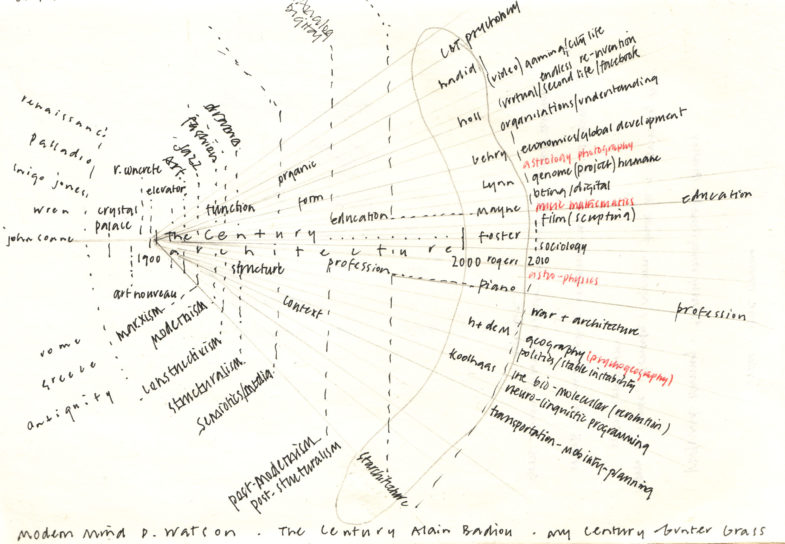 analog
digital
CBT psychology
hadid
(video) gaming/city life
endless re-invention
(virtual/second life/facebook
holl
organisations/understanding
behry
economics/global development
astrology photography
lynn
genome (project) humane
being/digital
mayne
music mathematics
education
film (scripting)
foster
sociology
rogers
2010
astro-physics
piano
profession
h+deM
war + architecture
geography (psychogeography)
koolhaas
politics/stable instability
bio-molecular (revolution)
neuro-linguistic programming
transportation-mobility-planning
starchitecture
renaissance
palladio
inigo jones
wren
john soane
crystal
palace
r. concrete
elevator
art
jazz
fashion
drama
organic
form
function
education
the century
architecture
1900
2000
profession
structure
context
art nouveau
marxism
modernism
constructivism
structuralism
semiotics/media
post-modernism
post-structuralism
rome
greece
antiquity
Modern Mind P. Watson . The Century Alain Badiou . my Century Gunter Grass